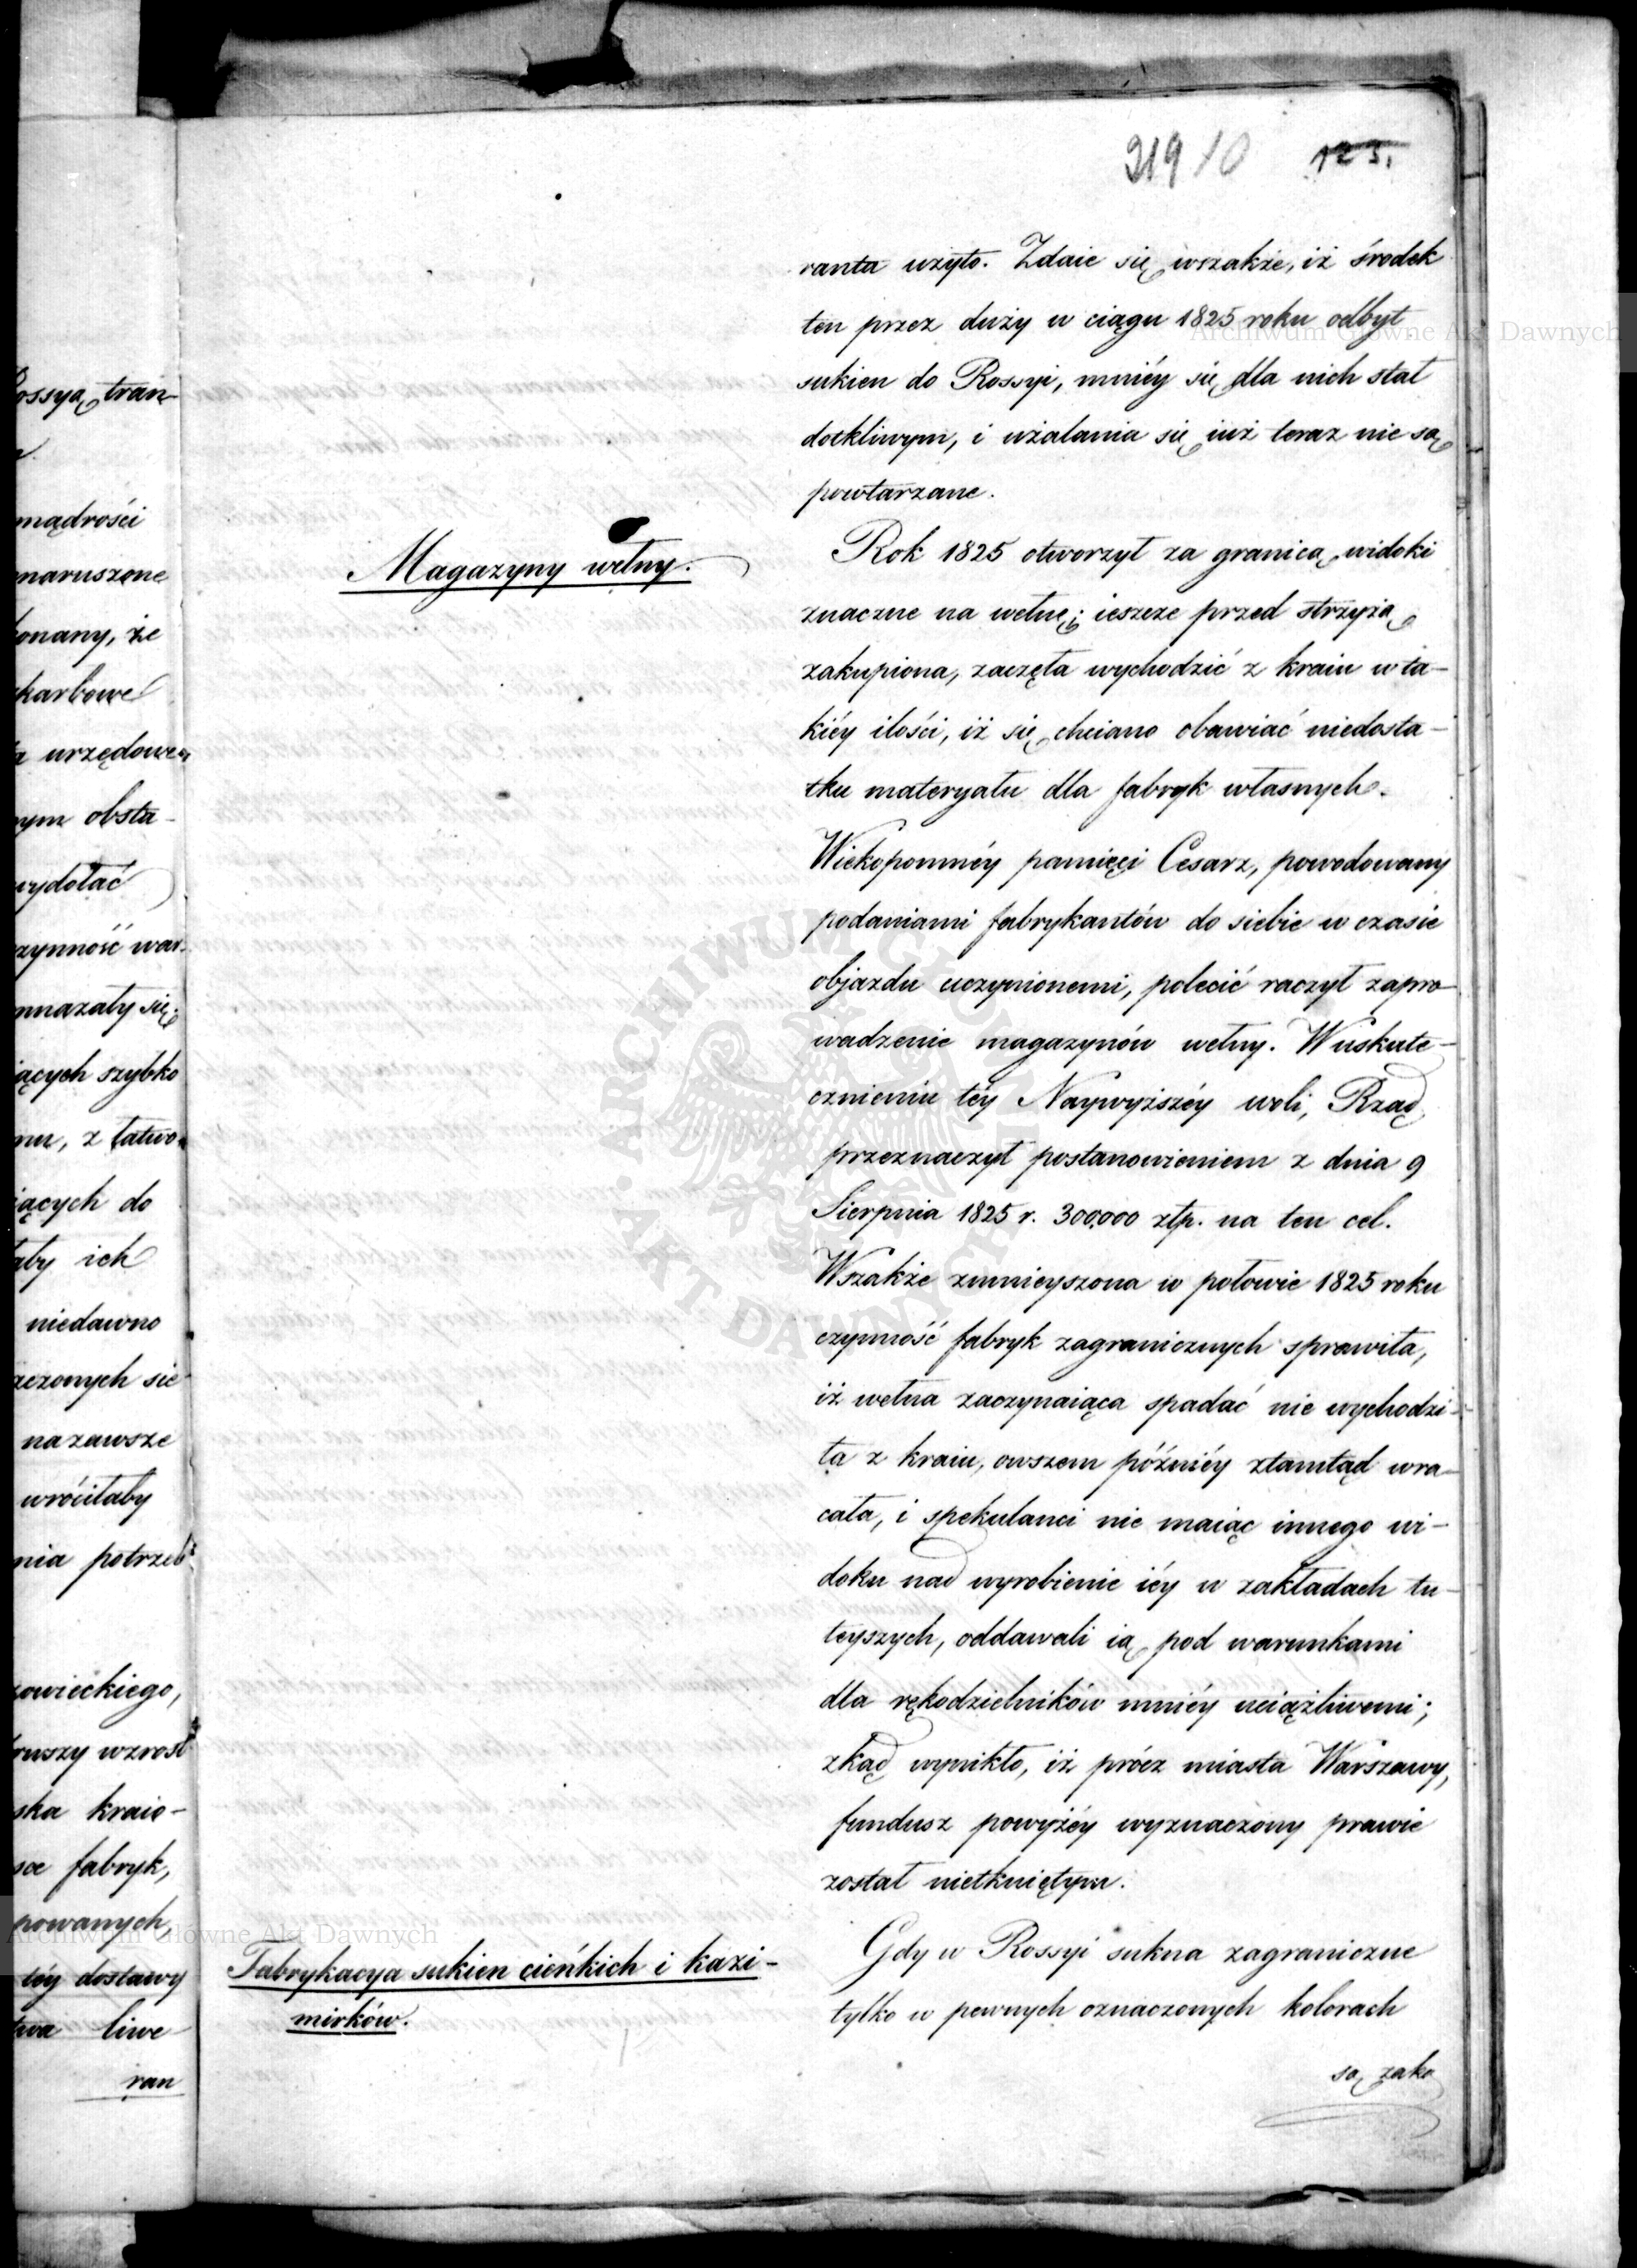 ossyą tran-
mądrości
naruszone
konany, że
skarbowe
urzędowe
nym obsta-
wydołać
czynność war-
mnażały się
iących szybko
mu, z łatwo
iących do
aby ich
niedawno
czonych sie
na zawsze
wróciłaby
nia potrzeb
zowieckiego,
wzrost
ska kraio-
fabryk,
powanych,
téy dostawy
liwe
ran
319 10 123.
ranta użyto. Zdaie się wszakże, iż środek
ten przez duży w ciągu 1825 roku odbyt
sukien do Rossyi, mniéy się dla nich stał
dotkliwym, i użalania się iuż teraz nie są
powtarzane.
Magazyny wełny.
Rok 1825 otworzył za granicą widoki
znaczne na wełnę; ieszcze przed strzyżą
zakupiona, zaczęła wychodzić z kraiu w ta-
kiéy ilości, iż się chciano obawiać niedosta-
tku materyału dla fabryk własnych.
Wiekopomnéy pamięci Cesarz, powodowany
podaniami fabrykantów do siebie w czasie
objazdu uczynionemi, polecić raczył zapro-
wadzenie magazynów wełny. W uskute-
cznieniu téy Naywyższéy woli, Rząd
przeznaczył postanowieniem z dnia 9
Sierpnia 1825 r. 300,000 złp. na ten cel.
Wszakże zmnieyszona w połowie 1825 roku
czynność fabryk zagranicznych sprawiła,
iż wełna zaczynaiąca spadać nie wychodzi-
ła z kraiu, owszem późniéy ztamtąd wra-
cała, i spekulanci nie maiąc innego wi-
doku nad wyrobienie iéy w zakładach tu-
teyszych, oddawali ią pod warunkami
dla rękodzielników mniéy uciążliwemi;
zkąd wynikło, iż prócz miasta Warszawy,
fundusz powyżéy wyznaczony prawie
został nietkniętym.
Fabrykacya sukien cieńkich i kazi-
mirków.
Gdy w Rossyi sukna zagraniczne
tylko w pewnych oznaczonych kolorach
są zaka
Archiwum Główne Akt Dawnych
Archiwum Główne Akt Dawnych
ARCHIWUM GŁÓWNE · AKT DAWNYCH